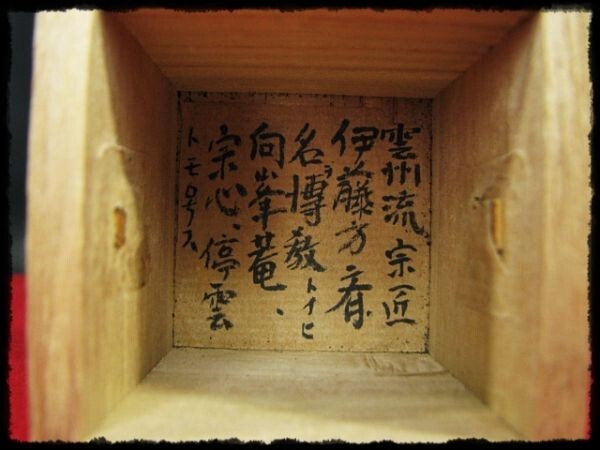 雲州流 宗匠
伊藤方斎
名ヲ博教トイヒ
向峯菴、
宗心、停雲
トモ号ス